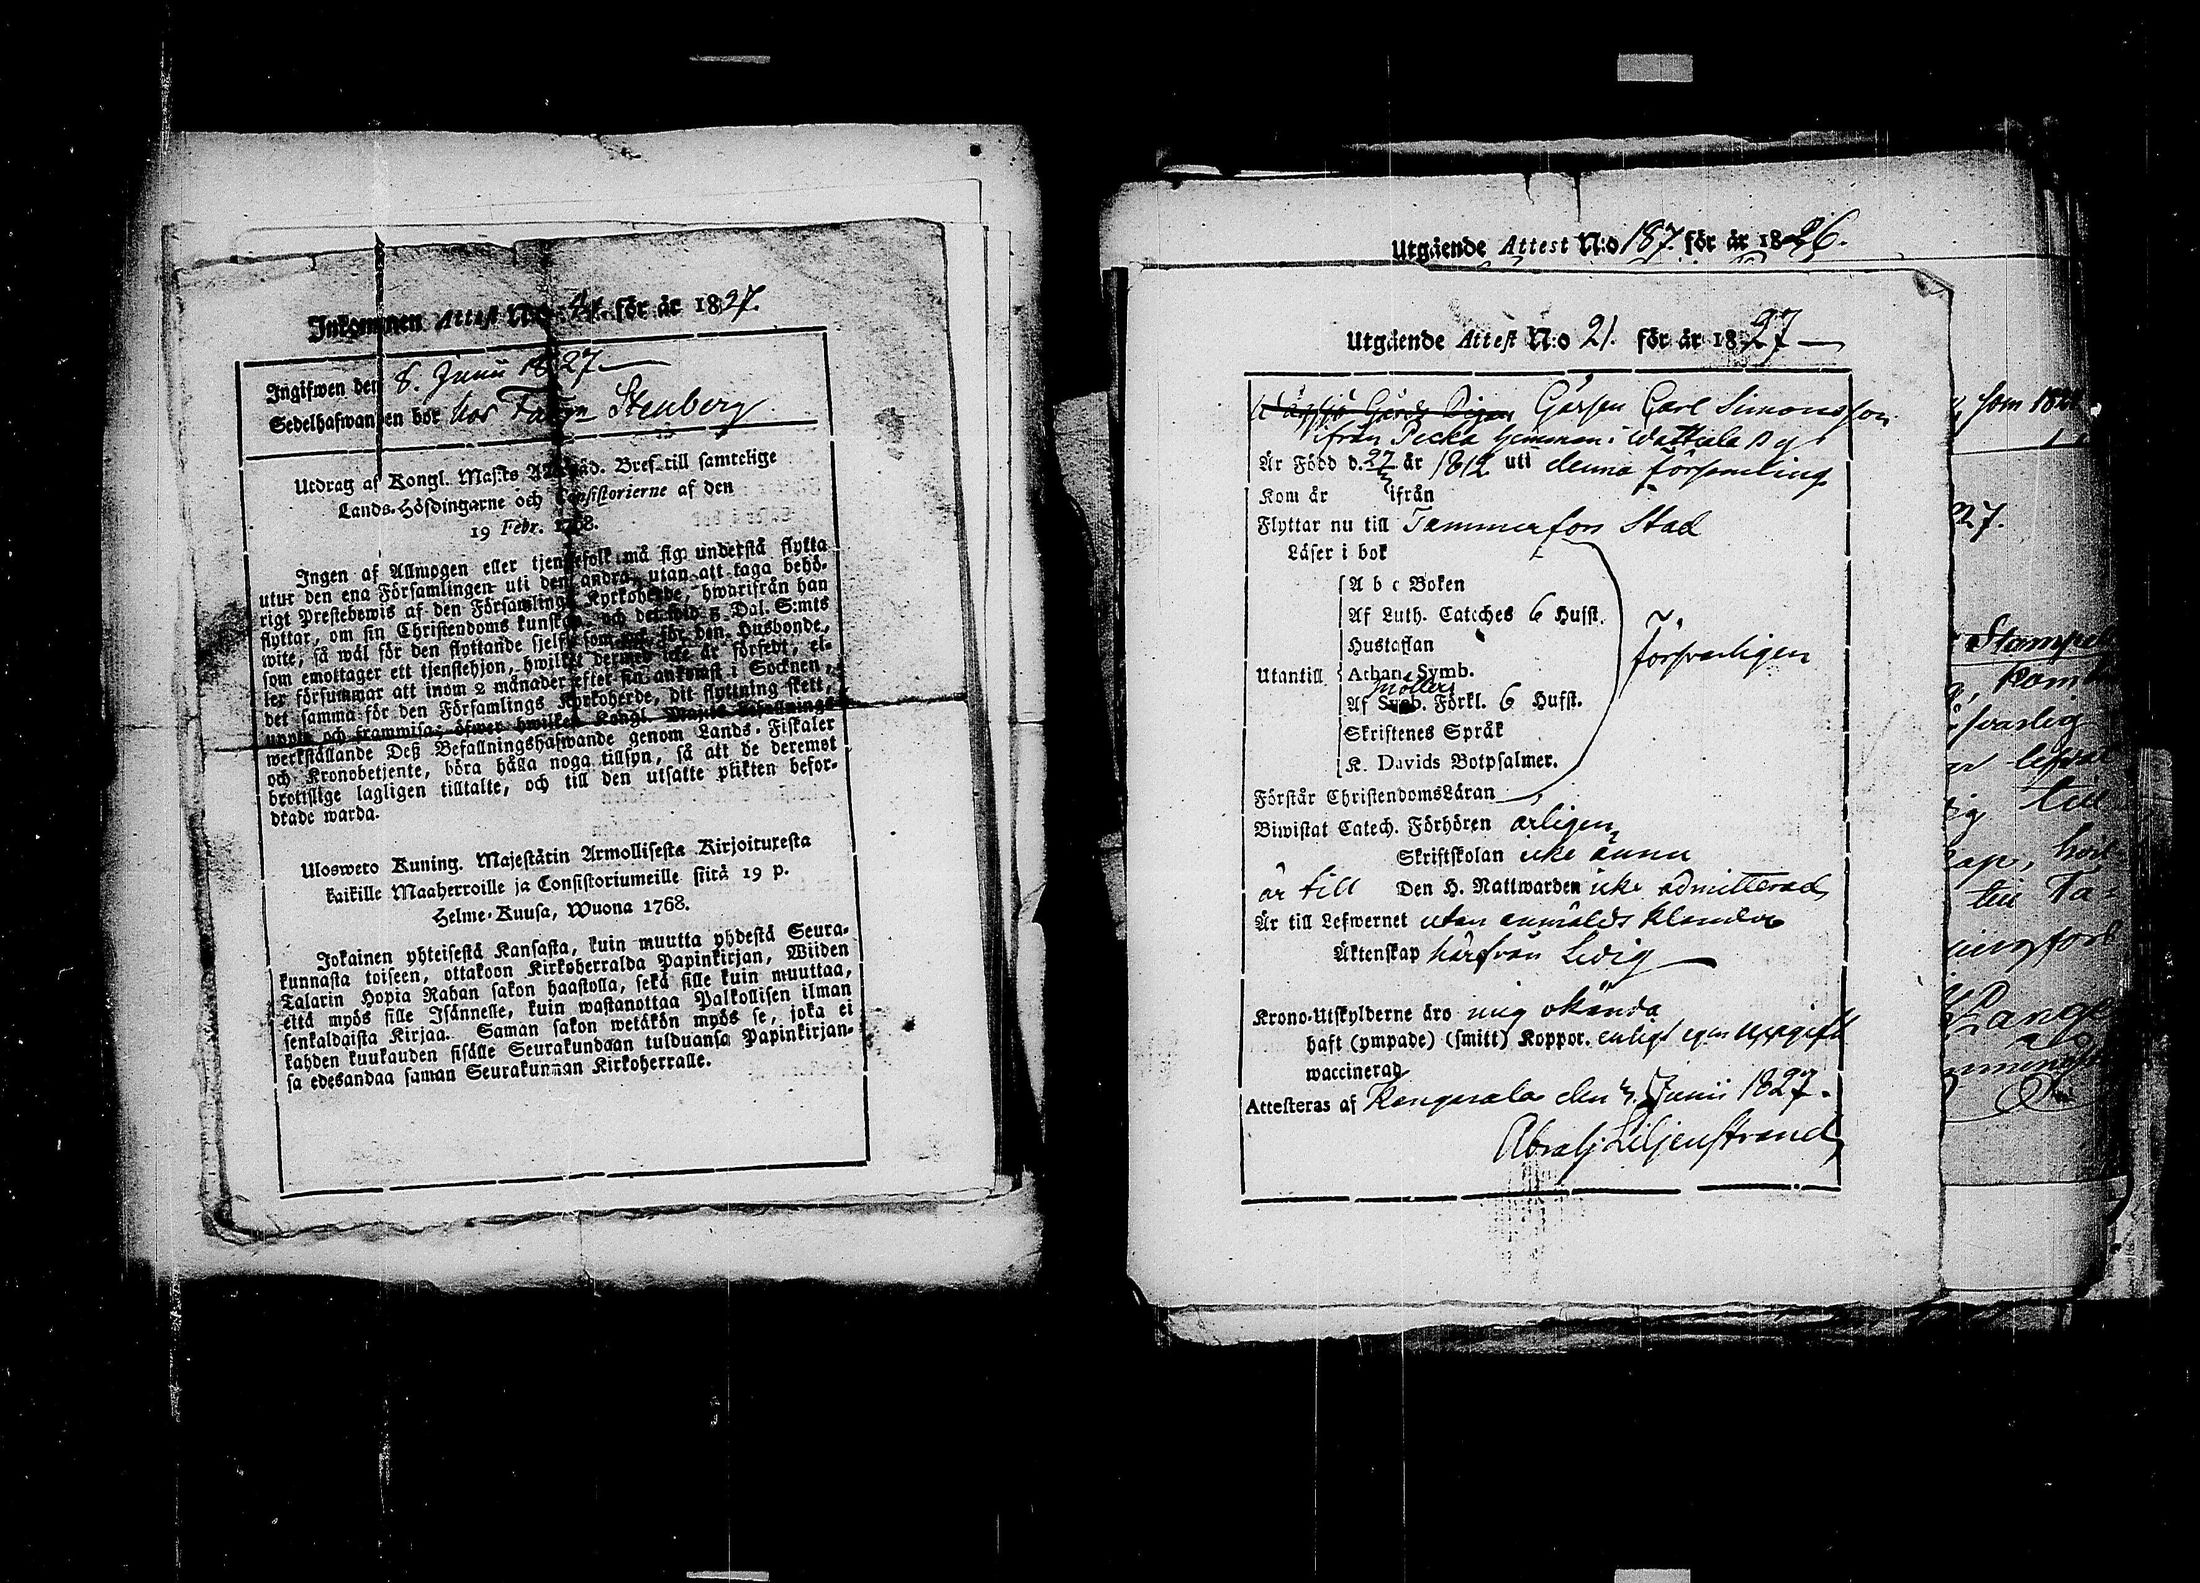 Inkommen Attest N:o 41. för år 1827.
Ingifwen den 8. Junii 1827
Sedelhafwanden bor hos Stenberg
Utdrag af Kongl. Maj:ts Bref till samtelige
Lands-Höfdingarne och Consistorierne af den
19 Febr. 1768.
Ingen af Allmogen eller tjenstefolk må sig understå flytta
utur den ena Församlingen uti den andra, utan att taga behö-
rigt Prestebewis af den Församlings Kyrkoherde, hwarifrån han
flyttar, om sin Christendoms kunskap, och det wid 5 Dal. S:mts
wite, så wäl för den flyttande sjelf, som ock för den Husbonde,
som emottager ett tjenstehjon, hwilket dermed icke är försedt, el-
ler försummar att inom 2 månader efter sin ankomst i Socknen,
det samma för den Församlings Kyrkoherde, dit flyttning skett,
uppte och framwisa; öfwer hwilket Kongl. Maj:ts Befallnings
werkställande Deß Befallningshafwande genom Lands-Fiskaler
och Kronobetjente, böra hålla noga tillsyn, så att de deremot
brottslige lagligen tilltalte, och till den utsatte plikten befor-
drade warda.
Ulosweto Kuning. Majestätin Armollisesta Kirjoituxesta
kaikille Maaherroille ja Consistoriumeille siitä 19 p.
Helme-Kuusa, Wuona 1768.
Jokainen yhteisestä Kansasta, kuin muutta yhdestä Seura-
kunnasta toiseen, ottakoon Kirkoherralda Papinkirjan, Wiiden
Talarin Hopia Rahan sakon haastolla, sekä sille kuin muuttaa,
että myös sille Isännelle, kuin wastanottaa Palkollisen ilman
senkaldaista Kirjaa. Saman sakon wetäkön myös se, joka ei
kahden kuukauden sisälle Seurakundaan tulduansa Papinkirjan-
sa edesandaa saman Seurakunnan Kirkoherralle.
Utgående Attest N:o 187. för år 1826.
Utgående Attest N:o 21. för år 1827
Gåssen Carl Simonsson
ifrån Pecka hemman i Wattiala By
Är Född d. 27 år 1812 uti denna församling
Kom år ifrån
Flyttar nu till Tammerfors Stad
Läser i bok
A b c Boken
Af Luth. Cateches 6 Hufst.
Hustaflan
Utantill Athan. Symb.
Möllers
Af Symb. Förkl. 6 Hufst.
Skriftenes Språk
K. Davids Botpsalmer.
försvarligen
Förstår ChristendomsLäran
Biwistat Catech. Förhören årligen
Skriftskolan icke ännu
är till Den H. Nattwarden icke admitterad
Är till Lefwernet utan anmäldt klander
Äktenskap härifrån Ledig
Krono-Utskylderne äro mig okända
haft (ympade) (smitt) Koppor. enligt egen uppgift
waccinerad
Attesteras af Kangasala den 4. Junii 1827.
Abrah: Liljenstrand
som 182
27.
Stampel
till